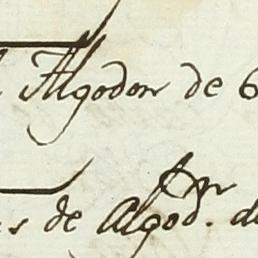 Algodon de 6
de Algod.